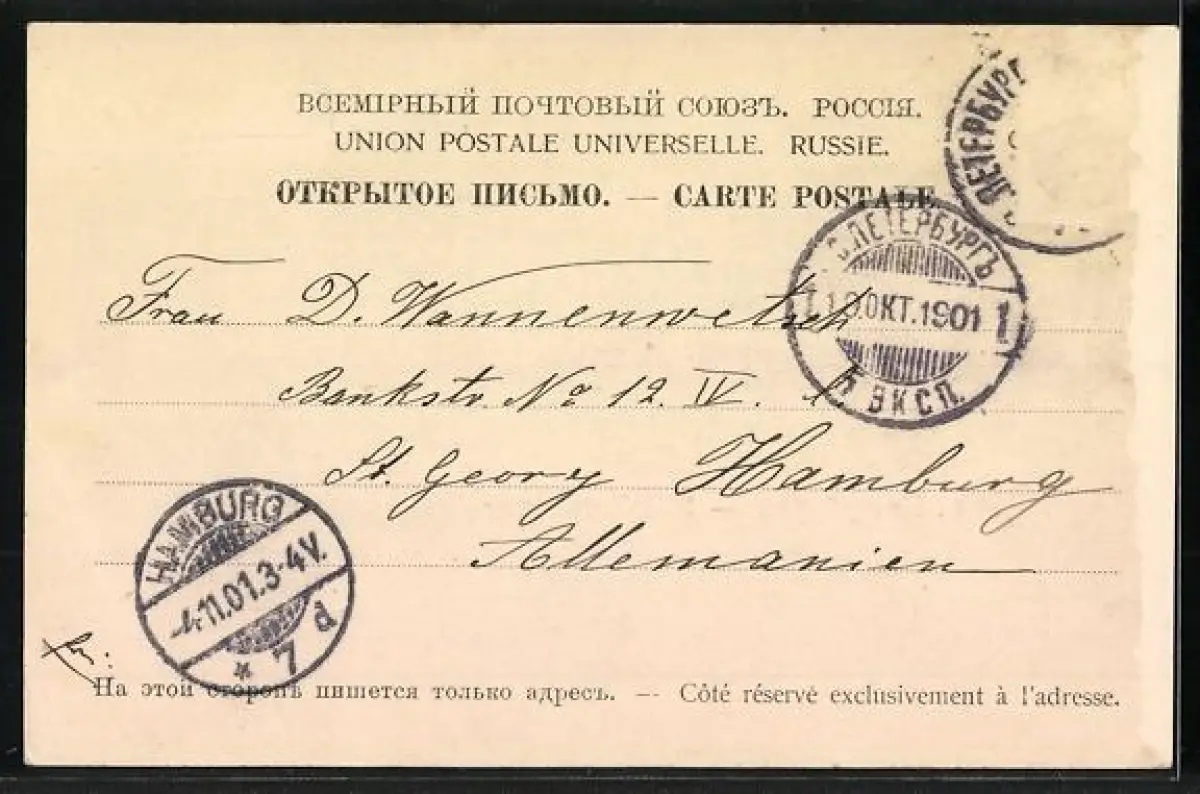 ВСЕМІРНЫЙ ПОЧТОВЫЙ СОЮЗЪ. РОССІЯ.
UNION POSTALE UNIVERSELLE. RUSSIE.
ОТКРЫТОЕ ПИСЬМО. — CARTE POSTALE.
С. ПЕТЕРБУРГ
С. ПЕТЕРБУРГЪ
ОКТ. 1901 1
5 ЭКСП.
Frau D. Wannenwetsch
Bankstr. No 12. IV.
St. Georg Hamburg
Allemanien
HAMBURG
4.11.01.3-4V.
* 7 d
На этой сторонѣ пишется только адресъ. — Côté réservé exclusivement à l'adresse.